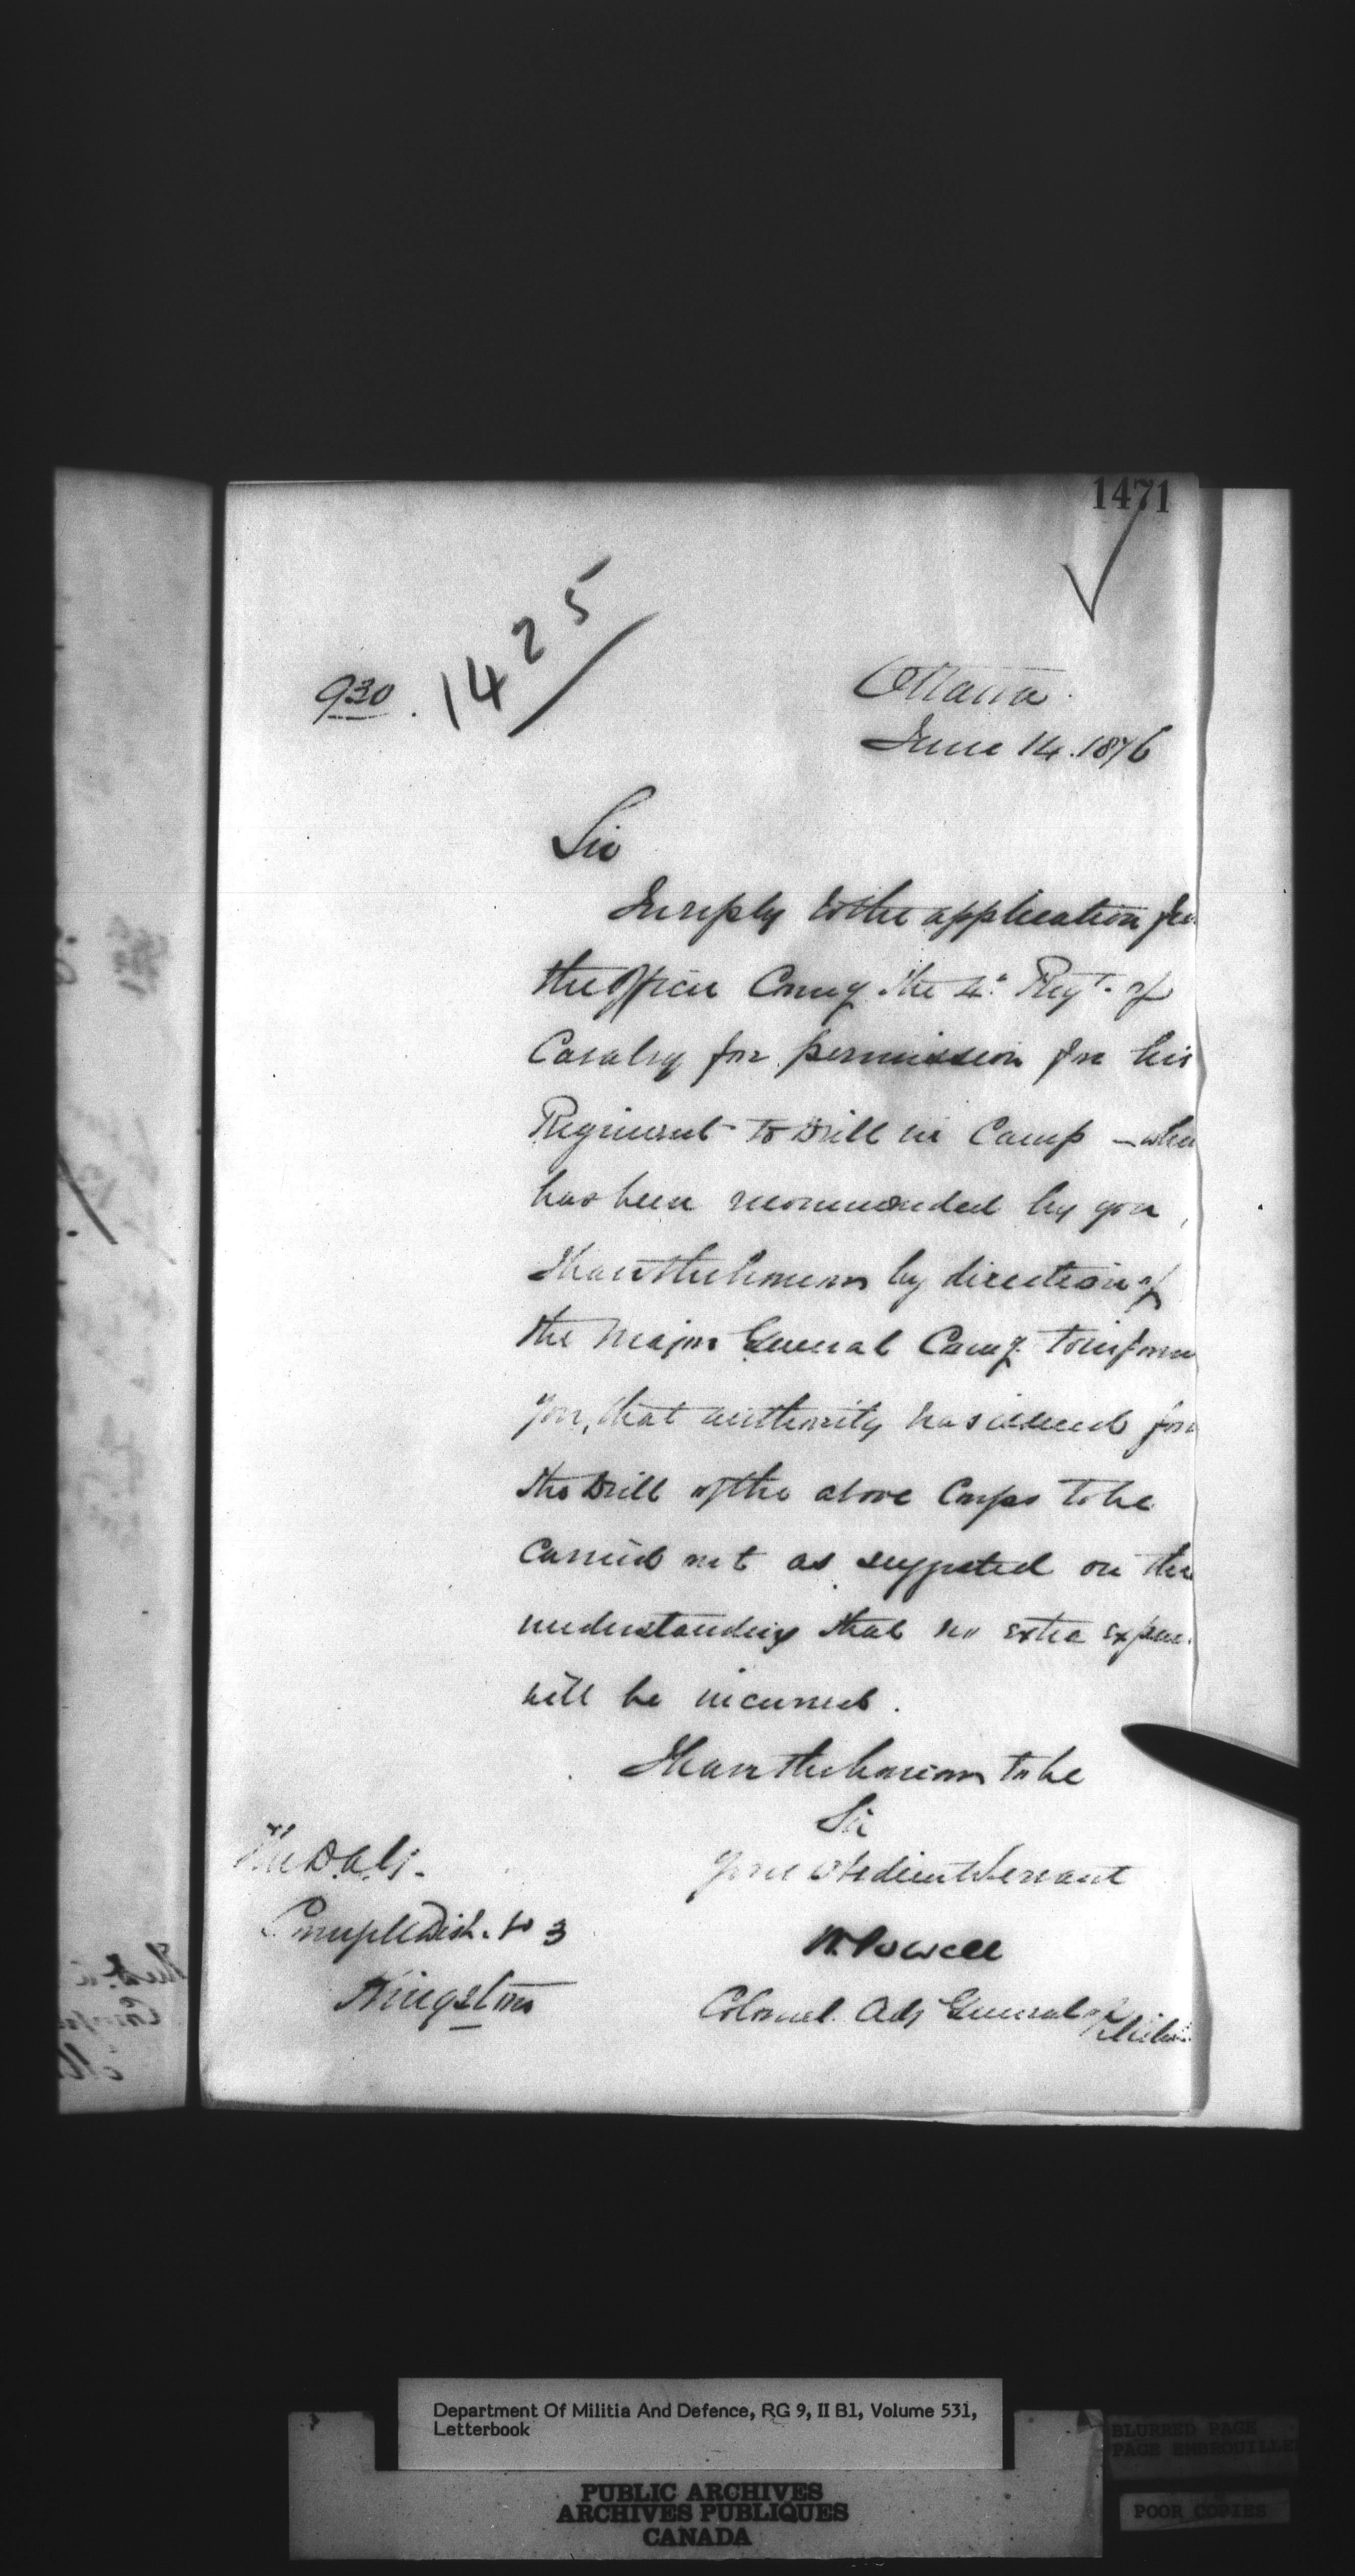 1471
930. 1425
Ottawa
June 14. 1876
Sir
In reply to the application
the Officer Comng the 4th Regt. of
Cavalry for permission for his
Regiment to Drill in Camp –
has been recommended by you,
I have the honour by direction of
the Major General Comg. to inform
you, that authority has issued for
the Drill of the above Corps to be
carried out as suggested on the
understanding that no extra
will be incurred.
I have the honour to be
Sir
Your obedient Servant
W. Powell
Colonel. Adj General of Militia
The D.A.G.
Comg Mil Dist. No 3
Kingston
Department Of Militia And Defence, RG 9, II B1, Volume 531,
Letterbook
PUBLIC ARCHIVES
ARCHIVES PUBLIQUES
CANADA
BLURRED PAGE
PAGE EMBROUILLE
POOR COPIES